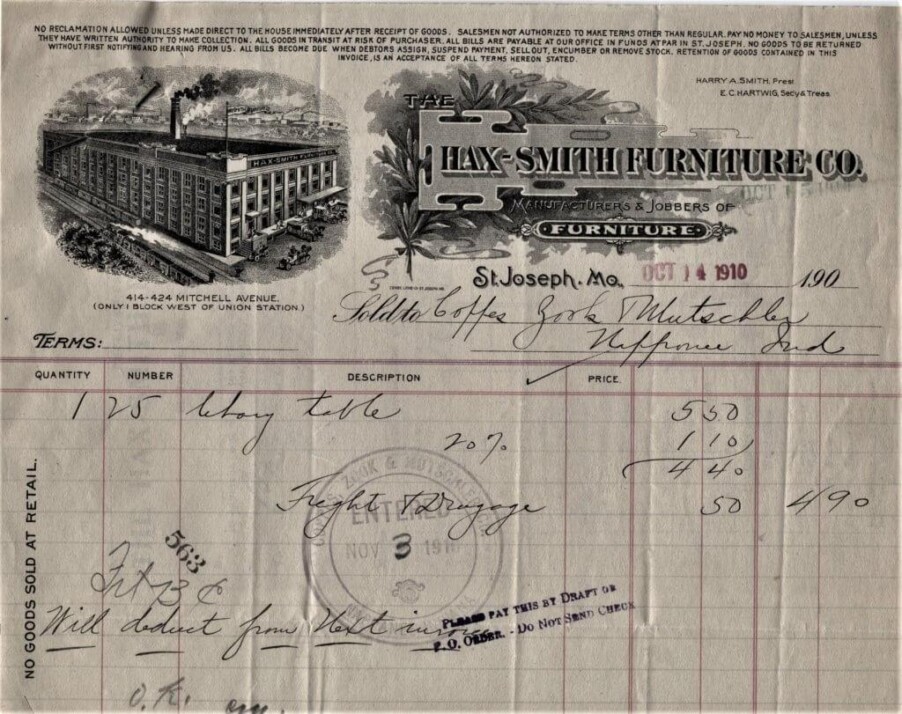 NO RECLAMATION ALLOWED UNLESS MADE DIRECT TO THE HOUSE IMMEDIATELY AFTER RECEIPT OF GOODS. SALESMEN NOT AUTHORIZED TO MAKE TERMS OTHER THAN REGULAR. PAY NO MONEY TO SALESMEN, UNLESS
THEY HAVE WRITTEN AUTHORITY TO MAKE COLLECTION. ALL GOODS IN TRANSIT AT RISK OF PURCHASER. ALL BILLS ARE PAYABLE AT OUR OFFICE IN FUNDS AT PAR IN ST. JOSEPH. NO GOODS TO BE RETURNED
WITHOUT FIRST NOTIFYING AND HEARING FROM US. ALL BILLS BECOME DUE WHEN DEBTORS ASSIGN, SUSPEND PAYMENT, SELL OUT, ENCUMBER OR REMOVE STOCK. RETENTION OF GOODS CONTAINED IN THIS
INVOICE, IS AN ACCEPTANCE OF ALL TERMS HEREON STATED.
HARRY A. SMITH, Prest
E.C. HARTWIG, Secy & Treas.
THE
HAX-SMITH FURNITURE CO.
MANUFACTURERS & JOBBERS OF
FURNITURE
HAX-SMITH FURNITURE
414-424 MITCHELL AVENUE.
(ONLY 1 BLOCK WEST OF UNION STATION.)
St. Joseph, Mo. OCT 14 1910 190
Sold to Coppes Zook & Mutschler
Nappanee Ind
TERMS:
QUANTITY NUMBER DESCRIPTION PRICE
1 25 table 5 50
20% 1 10
4 40
Freight & Drayage 50 4 90
ZOOK & MUTSCHLER
ENTERED
NOV 3 191
563
Frt 13¢
Will deduct from Next
PLEASE PAY THIS BY DRAFT OR
P.O. ORDER. - DO NOT SEND CHECK
O.K.
NO GOODS SOLD AT RETAIL.